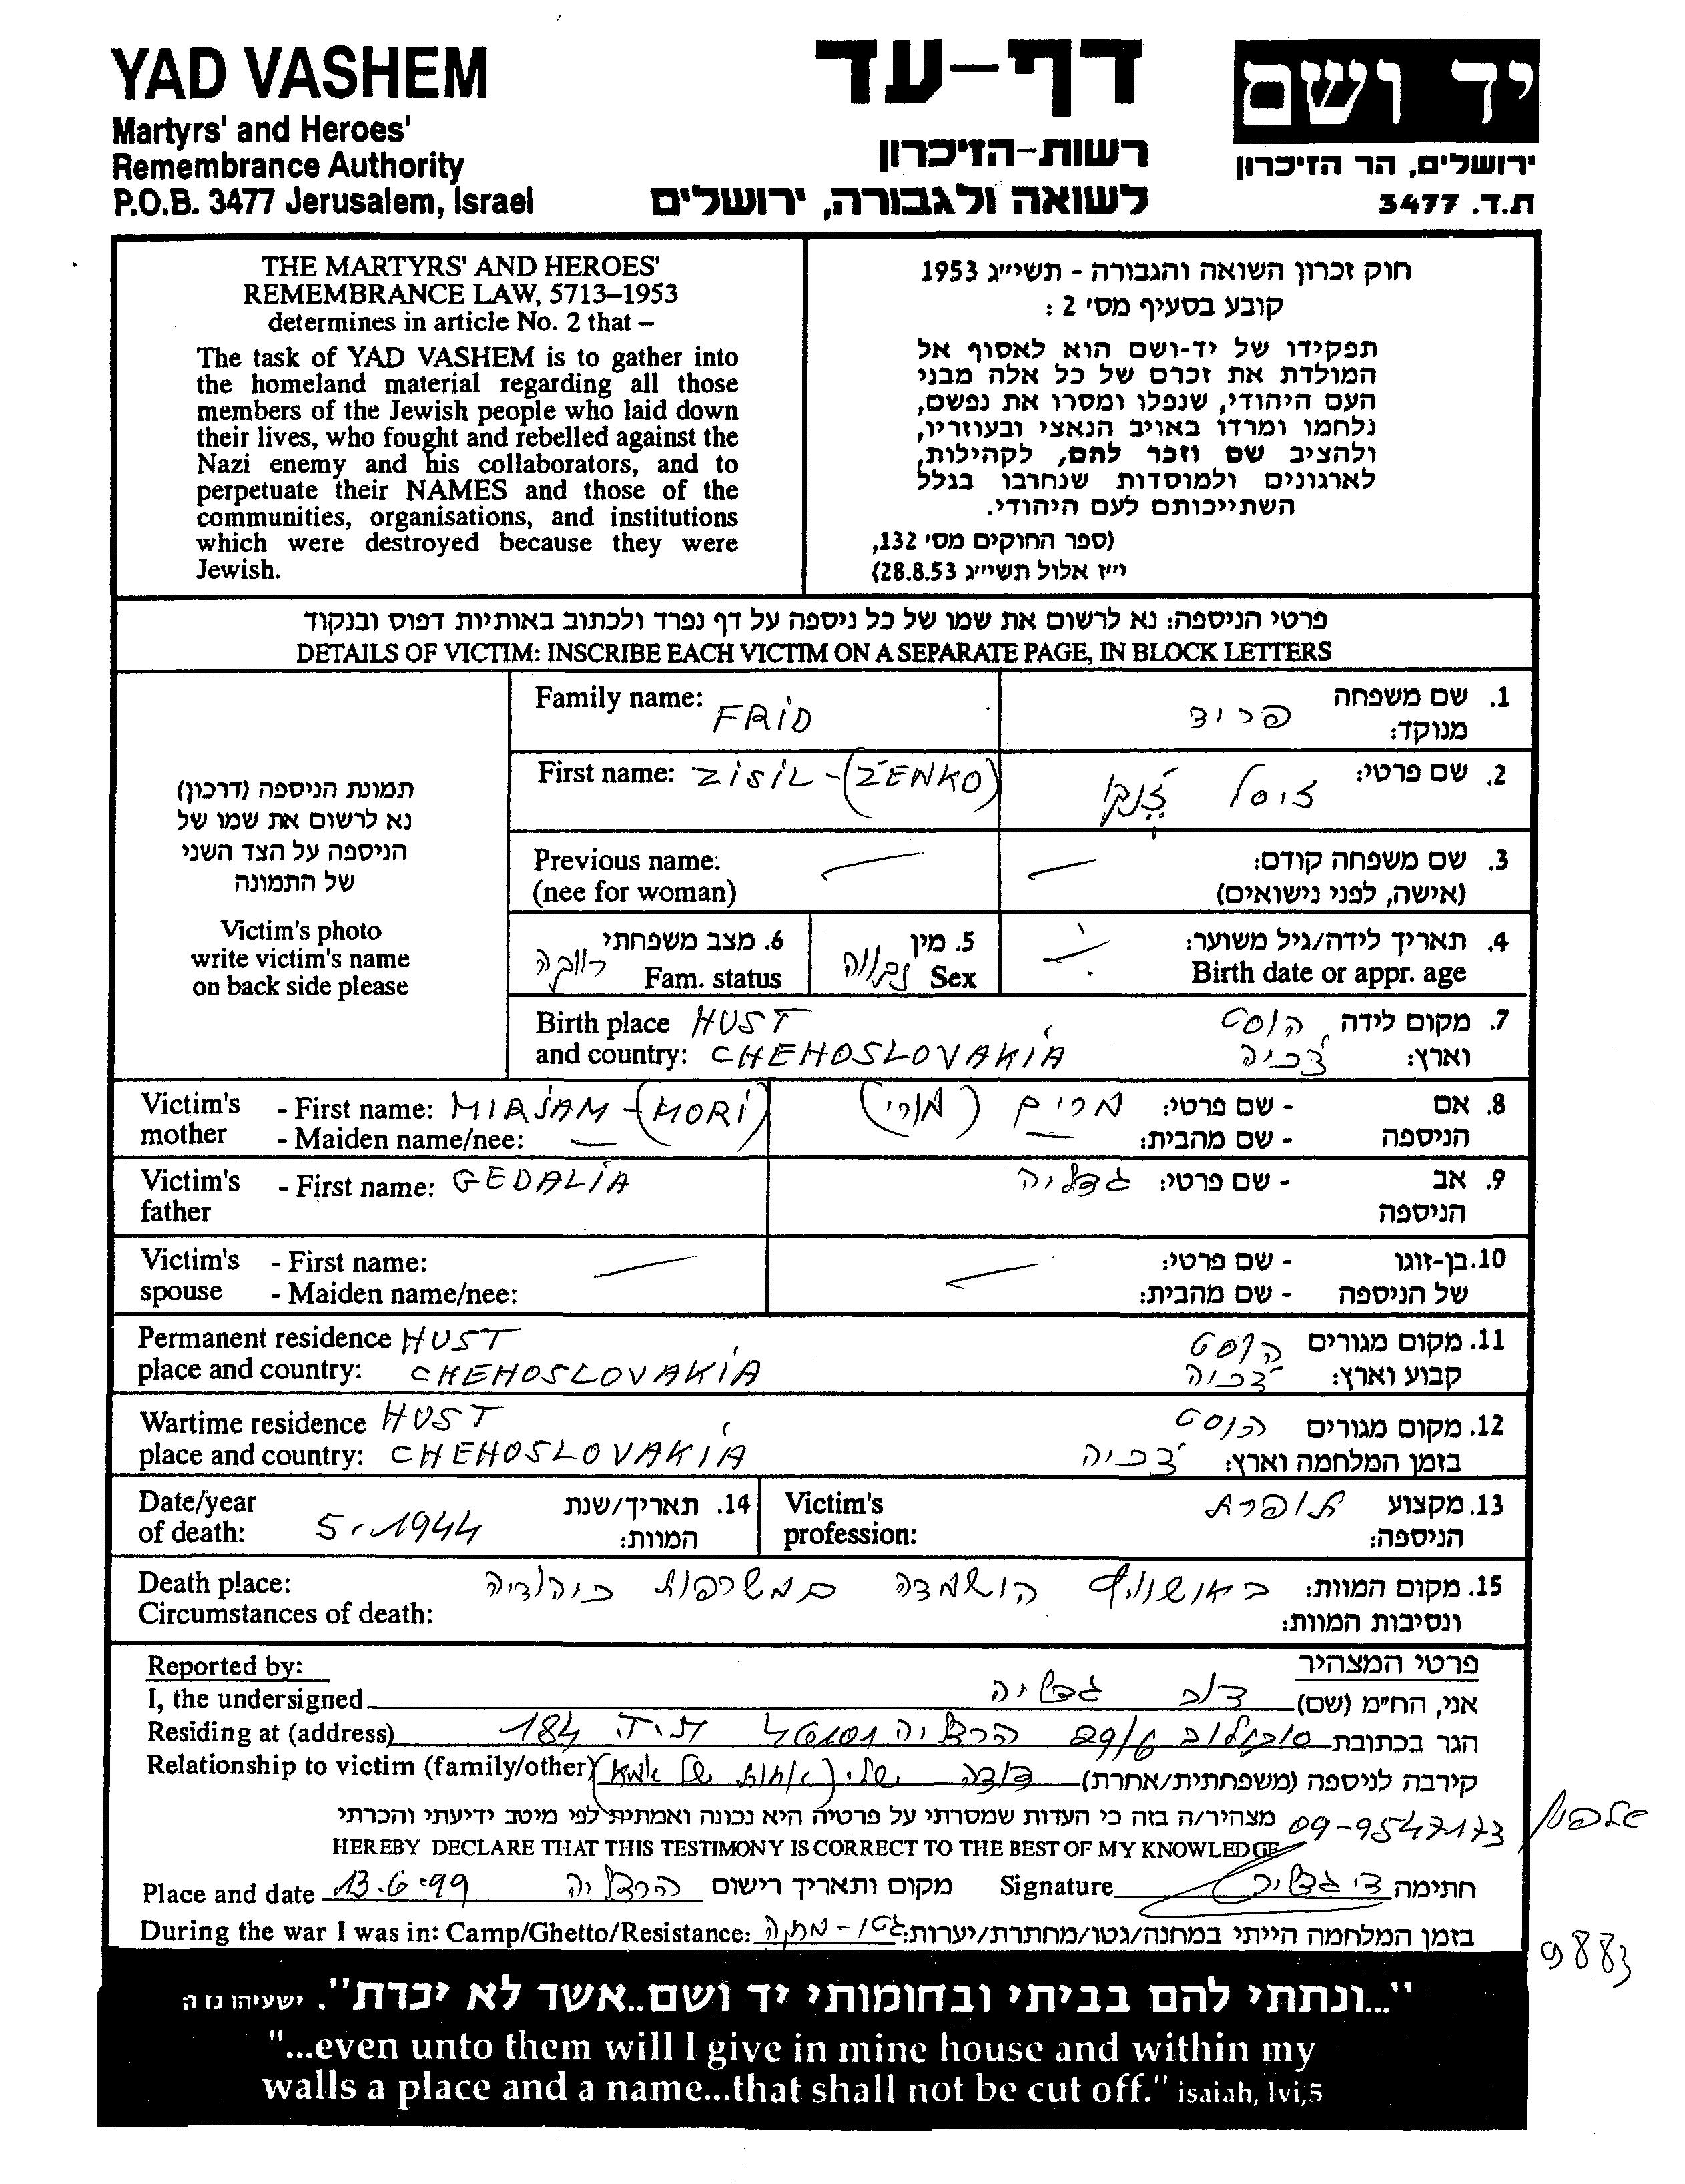 YAD VASHEM
Martyrs' and Heroes'
Remembrance Authority
P.O.B. 3477 Jerusalem, Israel
דף-עד
רשות-הזיכרון
לשואה ולגבורה, ירושלים
יד ושם
ירושלים, הר הזיכרון
ת.ד. 3477
THE MARTYRS' AND HEROES'
REMEMBRANCE LAW, 5713–1953
determines in article No. 2 that –
The task of YAD VASHEM is to gather into
the homeland material regarding all those
members of the Jewish people who laid down
their lives, who fought and rebelled against the
Nazi enemy and his collaborators, and to
perpetuate their NAMES and those of the
communities, organisations, and institutions
which were destroyed because they were
Jewish.
חוק זכרון השואה והגבורה - תשי״ג 1953
קובע בסעיף מס׳ 2 :
תפקידו של יד-ושם הוא לאסוף אל
המולדת את זכרם של כל אלה מבני
העם היהודי, שנפלו ומסרו את נפשם,
נלחמו ומרדו באויב הנאצי ובעוזריו,
ולהציב שם וזכר להם, לקהילות,
לארגונים ולמוסדות שנחרבו בגלל
השתייכותם לעם היהודי.
(ספר החוקים מס׳ 132,
י״ז אלול תשי״ג 28.8.53)
פרטי הניספה: נא לרשום את שמו של כל ניספה על דף נפרד ולכתוב באותיות דפוס ובנקוד
DETAILS OF VICTIM: INSCRIBE EACH VICTIM ON A SEPARATE PAGE, IN BLOCK LETTERS
תמונת הניספה (דרכון)
נא לרשום את שמו של
הניספה על הצד השני
של התמונה
Victim's photo
write victim's name
on back side please
Family name: FRID
1. שם משפחה פריד
מנוקד:
First name: ZISIL-(ZENKO)
2. שם פרטי: זיסל זֶ'נקו
Previous name: —
(nee for woman)
3. שם משפחה קודם: —
(אישה, לפני נישואים)
6. מצב משפחתי רווקה
Fam. status
5. מין נקבה
Sex
4. תאריך לידה/גיל משוער:
Birth date or appr. age
Birth place HUST
and country: CHEHOSLOVAKIA
7. מקום לידה הוסט
וארץ: צ'כיה
Victim's - First name: MIRJAM-(MORI)
mother - Maiden name/nee: —
8. אם - שם פרטי: מרים (מורי)
הניספה - שם מהבית: —
Victim's - First name: GEDALIA
father
9. אב - שם פרטי: גדליה
הניספה
Victim's - First name: —
spouse - Maiden name/nee:
10. בן-זוגו - שם פרטי: —
של הניספה - שם מהבית:
Permanent residence HUST
place and country: CHEHOSLOVAKIA
11. מקום מגורים הוסט
קבוע וארץ: צ'כיה
Wartime residence HUST
place and country: CHEHOSLOVAKIA
12. מקום מגורים הוסט
בזמן המלחמה וארץ: צ'כיה
Date/year
of death: 5.1944
14. תאריך/שנת
המוות:
Victim's
profession:
13. מקצוע תופרת
הניספה:
Death place:
Circumstances of death:
15. מקום המוות: באושוויץ הושמדה במשרפות כיהודיה
ונסיבות המוות:
Reported by:
פרטי המצהיר
I, the undersigned אני, הח״מ (שם) דוב גדליה
Residing at (address) הגר בכתובת סוקולוב 29/6 הרצליה ת.ד. 184
Relationship to victim (family/other) קירבה לניספה (משפחתית/אחרת) דודה שלי (אחות של אמא)
מצהיר/ה בזה כי העדות שמסרתי על פרטיה היא נכונה ואמתית לפי מיטב ידיעתי והכרתי
טלפון 09-9547173
HEREBY DECLARE THAT THIS TESTIMONY IS CORRECT TO THE BEST OF MY KNOWLEDGE
Place and date 13.6.99 הרצליה מקום ותאריך רישום Signature ד. גדליה חתימה
During the war I was in: Camp/Ghetto/Resistance: בזמן המלחמה הייתי במחנה/גטו/מחתרת/יערות: גטו-
9883
"...ונתתי להם בביתי ובחומותי יד ושם..אשר לא יכרת". ישעיהו נז ה
"...even unto them will I give in mine house and within my
walls a place and a name...that shall not be cut off." isaiah, lvi,5